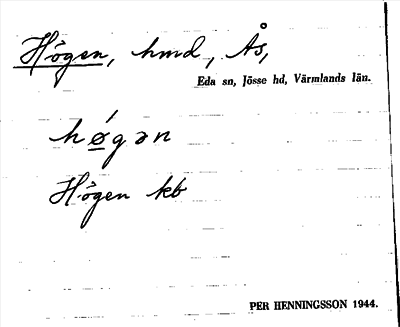 Högen, hmd, Ås,
Eda sn, Jösse hd, Värmlands län.
hǿ̲gən
Högen kb
PER HENNINGSSON 1944.